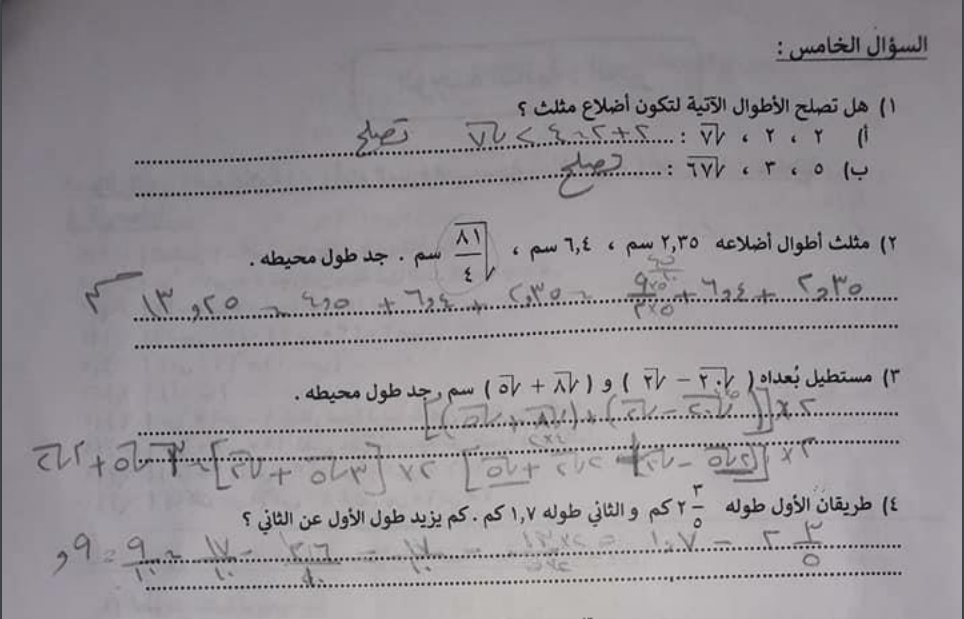 السؤال الخامس :
١) هل تصلح الأطوال الآتية لتكون أضلاع مثلث ؟
أ) ٢ ، ٢ ، √٧ : ٢+٢ = ٤ > √٧ تصلح
ب) ٥ ، ٣ ، √٦٧ : تصلح
٢) مثلث أطوال أضلاعه ٢,٣٥ سم ، ٦,٤ سم ، √(٨١/٤) سم . جد طول محيطه .
٢,٣٥ + ٦,٤ + ٩×٥/٢×٥ = ٢,٣٥ + ٦,٤ + ٤,٥ = ١٣,٢٥ سم
٣) مستطيل بُعداه ( √٢٠ − √٢ ) و ( √٨ + √٥ ) سم , جد طول محيطه .
٢×[(√٢٠ − √٢) + (√٨ + √٥)]
٢×[٢√٥ − √٢ + ٢√٢ + √٥] ٢×[٣√٥ + √٢] = ٦√٥ + ٢√٢
٤) طريقان الأول طوله ٢ ٣/٥ كم و الثاني طوله ١,٧ كم . كم يزيد طول الأول عن الثاني ؟
٢ ٣/٥ − ١,٧ = − ١٧/١٠ = ٢٦/١٠ − ١٧/١٠ = ٩/١٠ = ,٩